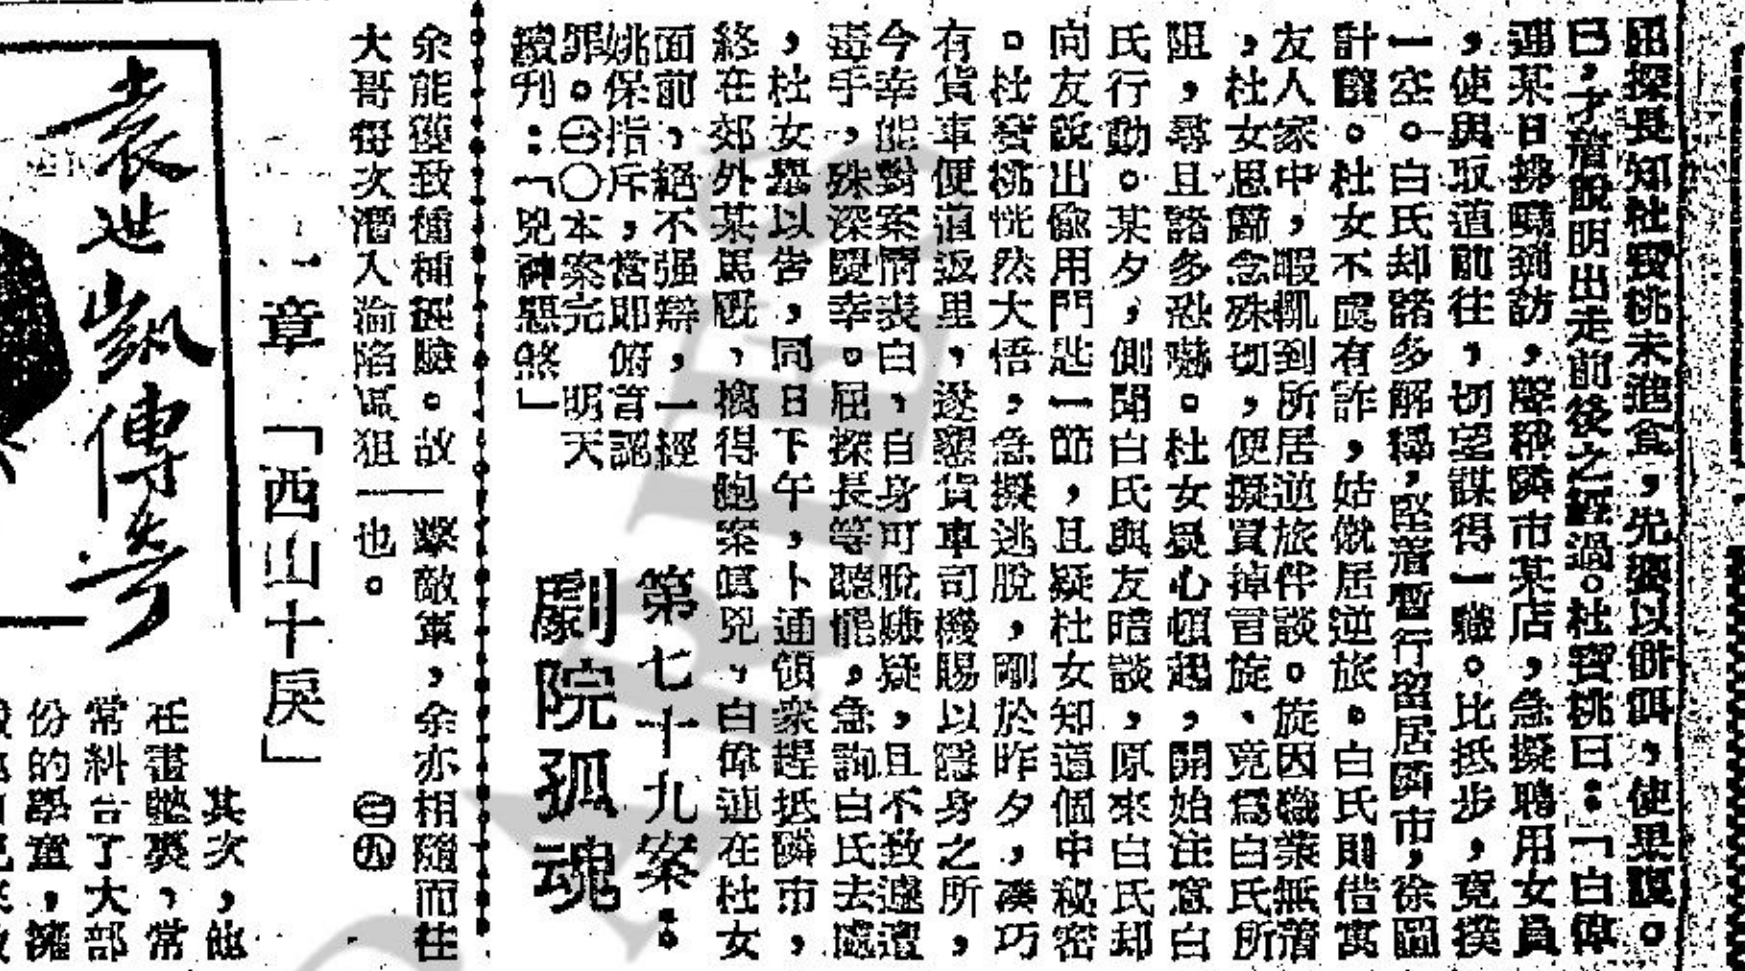 屈探長知杜寶桃未進食，先要以餅餌，使果腹。
已，才潛說明出走前後之經過。杜寶桃曰：「白偉
連某日撥囑到訪，堅稱隣市某店，急擬聘用女員
，使與取道前往，切望謀得一職。比抵步，竟撲
一空。白氏却諸多解釋，堅着暫行留居隣市，徐圖
計議。杜女不虞有詐，姑僦居逆旅。白氏則借寓
友人家中，暇輒到所居逆旅伴談。旋因職業無着
，杜女思歸念殊切，便擬買掉言旋、竟爲白氏所
阻，尋且諸多恐嚇。杜女戻心頓起，開始注意白
氏行動。某夕，側聞白氏與友暗談，原來白氏却
向友說出偸用門匙一節，且疑杜女知道個中秘密
。杜寶桃恍然大悟，急擬逃脫，剛於昨夕，湊巧
有貨車便道返里，遂懇貨車司機賜以隱身之所，
今幸能對案情表白，自身可脫嫌疑，且不致遽遭
毒手，殊深慶幸。屈探長等聽罷，急詢白氏去處
，杜女擧以告，同日下午，卜通領衆趕抵隣市，
終在郊外某馬厩，擒得鉋案眞兇，白偉連在杜女
面前，絕不强辯，一經
姚保指斥，當即俯首認
罪。㊀〇〇本案完　明天
續刊：「兇神惡煞」
第七十九案：
劇院孤魂
余能獲致種種經驗。故一擊敵軍，余亦相隨而往
大哥每次潛入淪陷區狙一也。　㊁㊈
一章　「西山十戾」
袁世凱傳奇
其次，他
在書塾裏，常
常糾合了大部
份的學童，擁